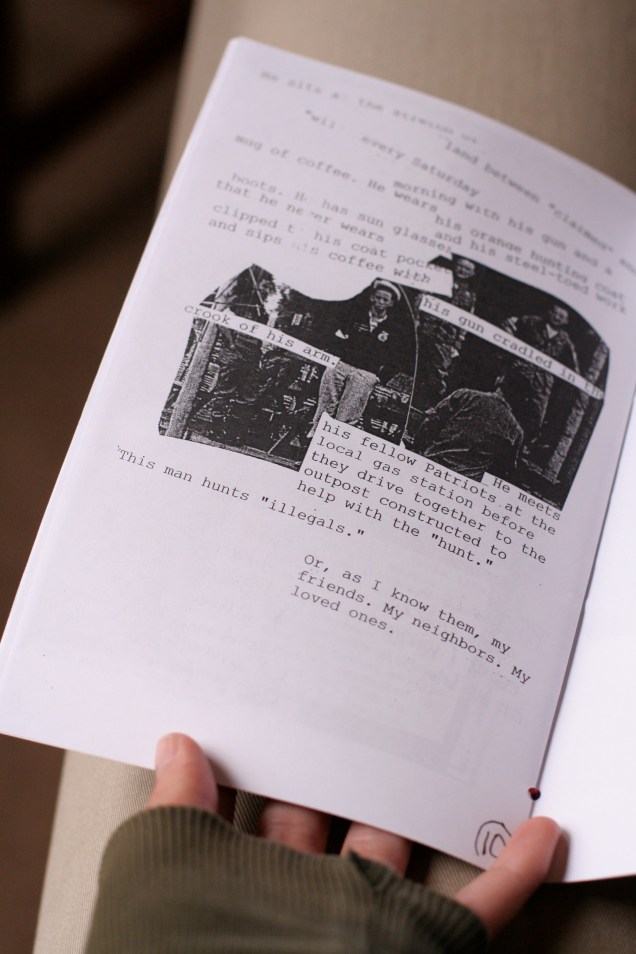 He sits at the
"wil every Saturday land between "claimed"
morning with his gun and a
mug of coffee. He wears his orange hunting coat
and his steel-toed work
boots. He has sun glasses
that he never wears
clipped t his coat pocke
and sips his coffee with
his gun cradled in
crook of his arm.
He meets
his fellow Patriots at the
local gas station before
they drive together to the
outpost constructed to
help with the "hunt."
This man hunts "illegals."
Or, as I know them, my
friends. My neighbors. My
loved ones.
10